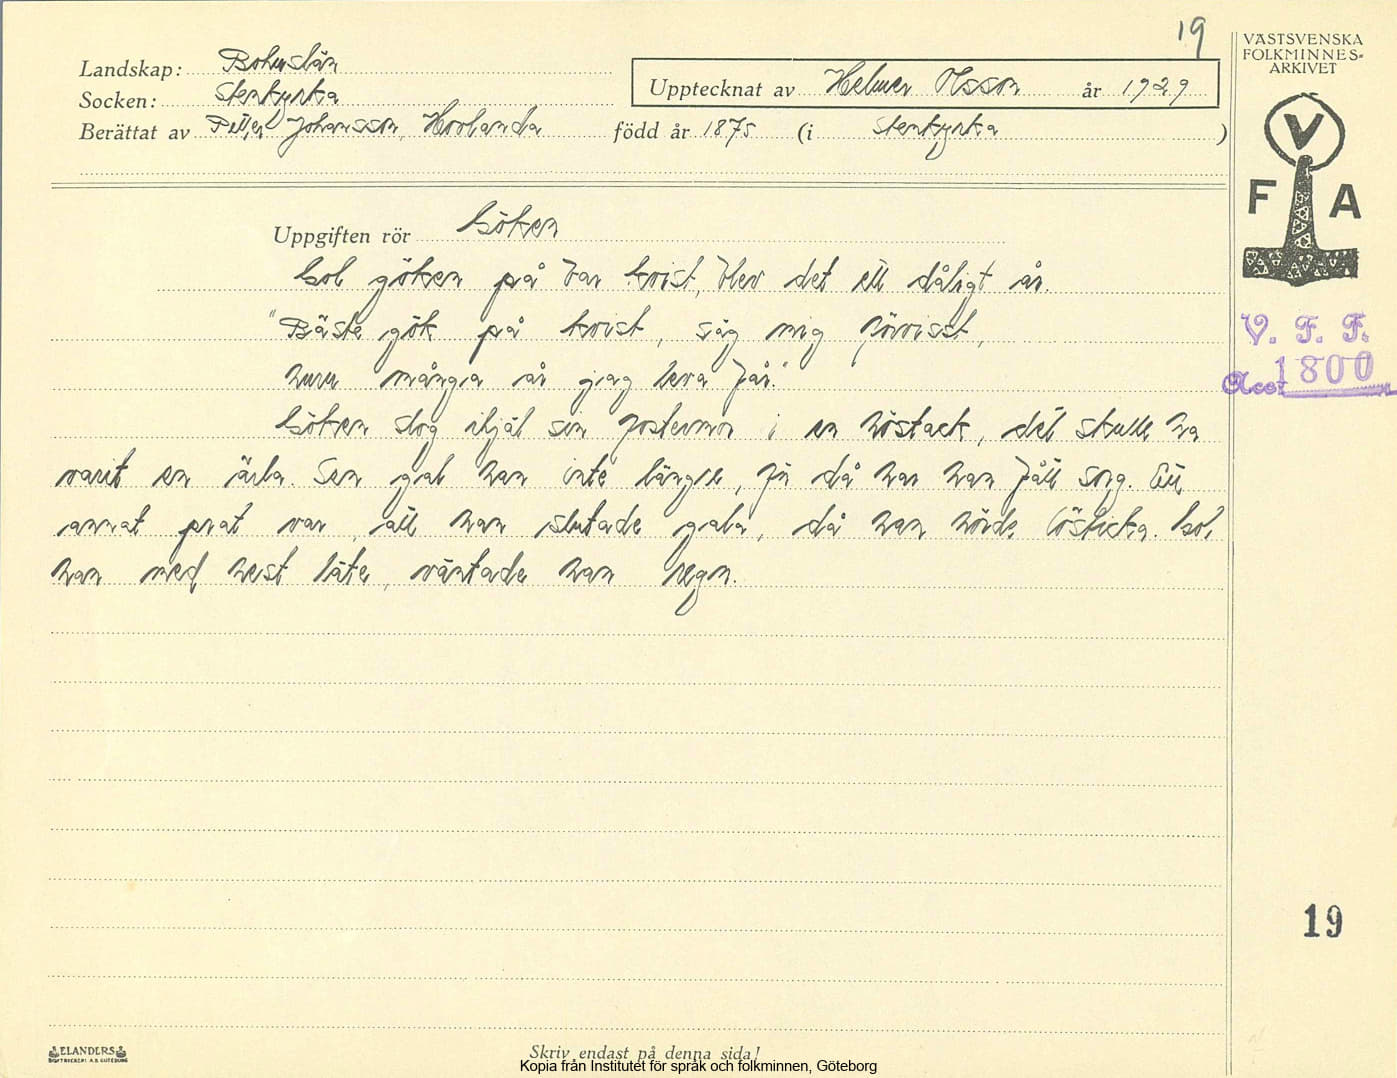 19
VÄSTSVENSKA
FOLKMINNES-
ARKIVET
Landskap: Bohuslän
Socken: Stenkyrka
Upptecknat av Helmer Olsson år 1929
Berättat av Petter Johansson, Hovlanda född år 1875 (i Stenkyrka )
V
F A
Uppgiften rör Göken
Gol göken på bar kvist, blev det ett dåligt år.
"Bästa gök på kvist, säg mig förvisst,
huru många år jag leva får."
V. F. F.
Acc. 1800
Göken slog ihjäl sin fostermor i en höstack, det skulle ha
varit en ärla. Sen gol han inte längre, för då har han fått sorg. Ett
annat prat var, att han slutade gala, då han hörde lösticka. Gol
han med hest läte, väntade han regn.
19
ELANDERS
BOKTRYCKERI A.B. GÖTEBORG
Skriv endast på denna sida!
Kopia från Institutet för språk och folkminnen, Göteborg